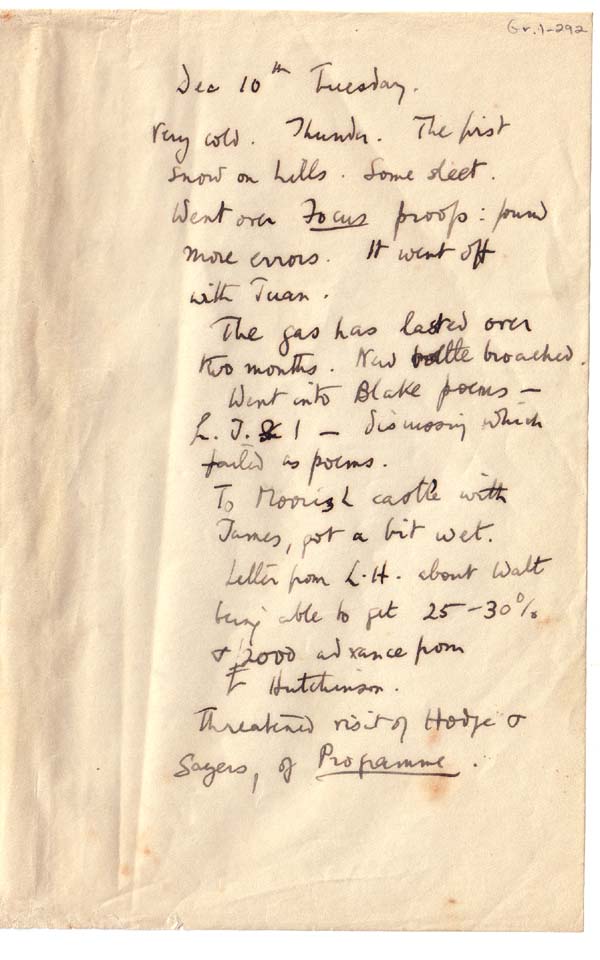 Gr. 1-292
Dec 10th Tuesday.
Very cold. Thunder. The first
snow on hills. Some sleet.
Went over Focus proofs: found
more errors. It went off
with Juan.
The gas has lasted over
two months. New bottle broached.
Went into Blake poems –
L. J. & I – discussing which
failed as poems.
To Moorish castle with
James, got a bit wet.
Letter from L.H. about Walt
being able to get 25-30%
& £2000 advance from
Hutchinson.
Threatened visit of Hodge &
Sayers, of Programme.